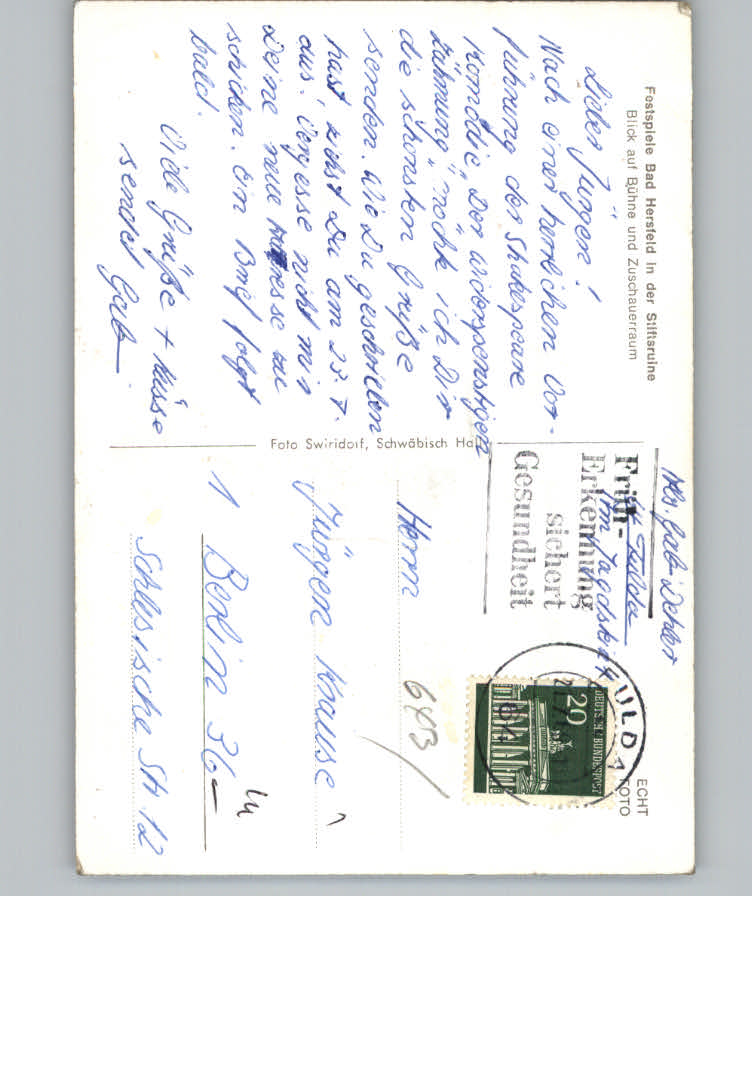 Festspiele Bad Hersfeld in der Stiftsruine
Blick auf Bühne und Zuschauerraum
Lieber Jürgen!
Nach einer herrlichen Vor-
führung der Shakespeare
Komödie „Der Widerspenstigen
Zähmung" möchte ich Dir
die schönsten Grüße
senden. Wie Du geschrieben
hast, ziehst Du am 23. 7.
aus. Vergesse nicht mir
Deine neue Adresse zu
schicken. Ein Brief folgt
bald.
Viele Grüße + Küsse
sendet Gab
Foto Swiridoff, Schwäbisch Hall
Abs. Gab Dehler
64 Fulda
Am Jagdstein
Früh-
Erkennung
sichert
Gesundheit
FULDA 1
DEUTSCHE BUNDESPOST
20
ECHT
FOTO
643
Herrn
Jürgen Krause
1 Berlin 36
Schlesische Str. 12